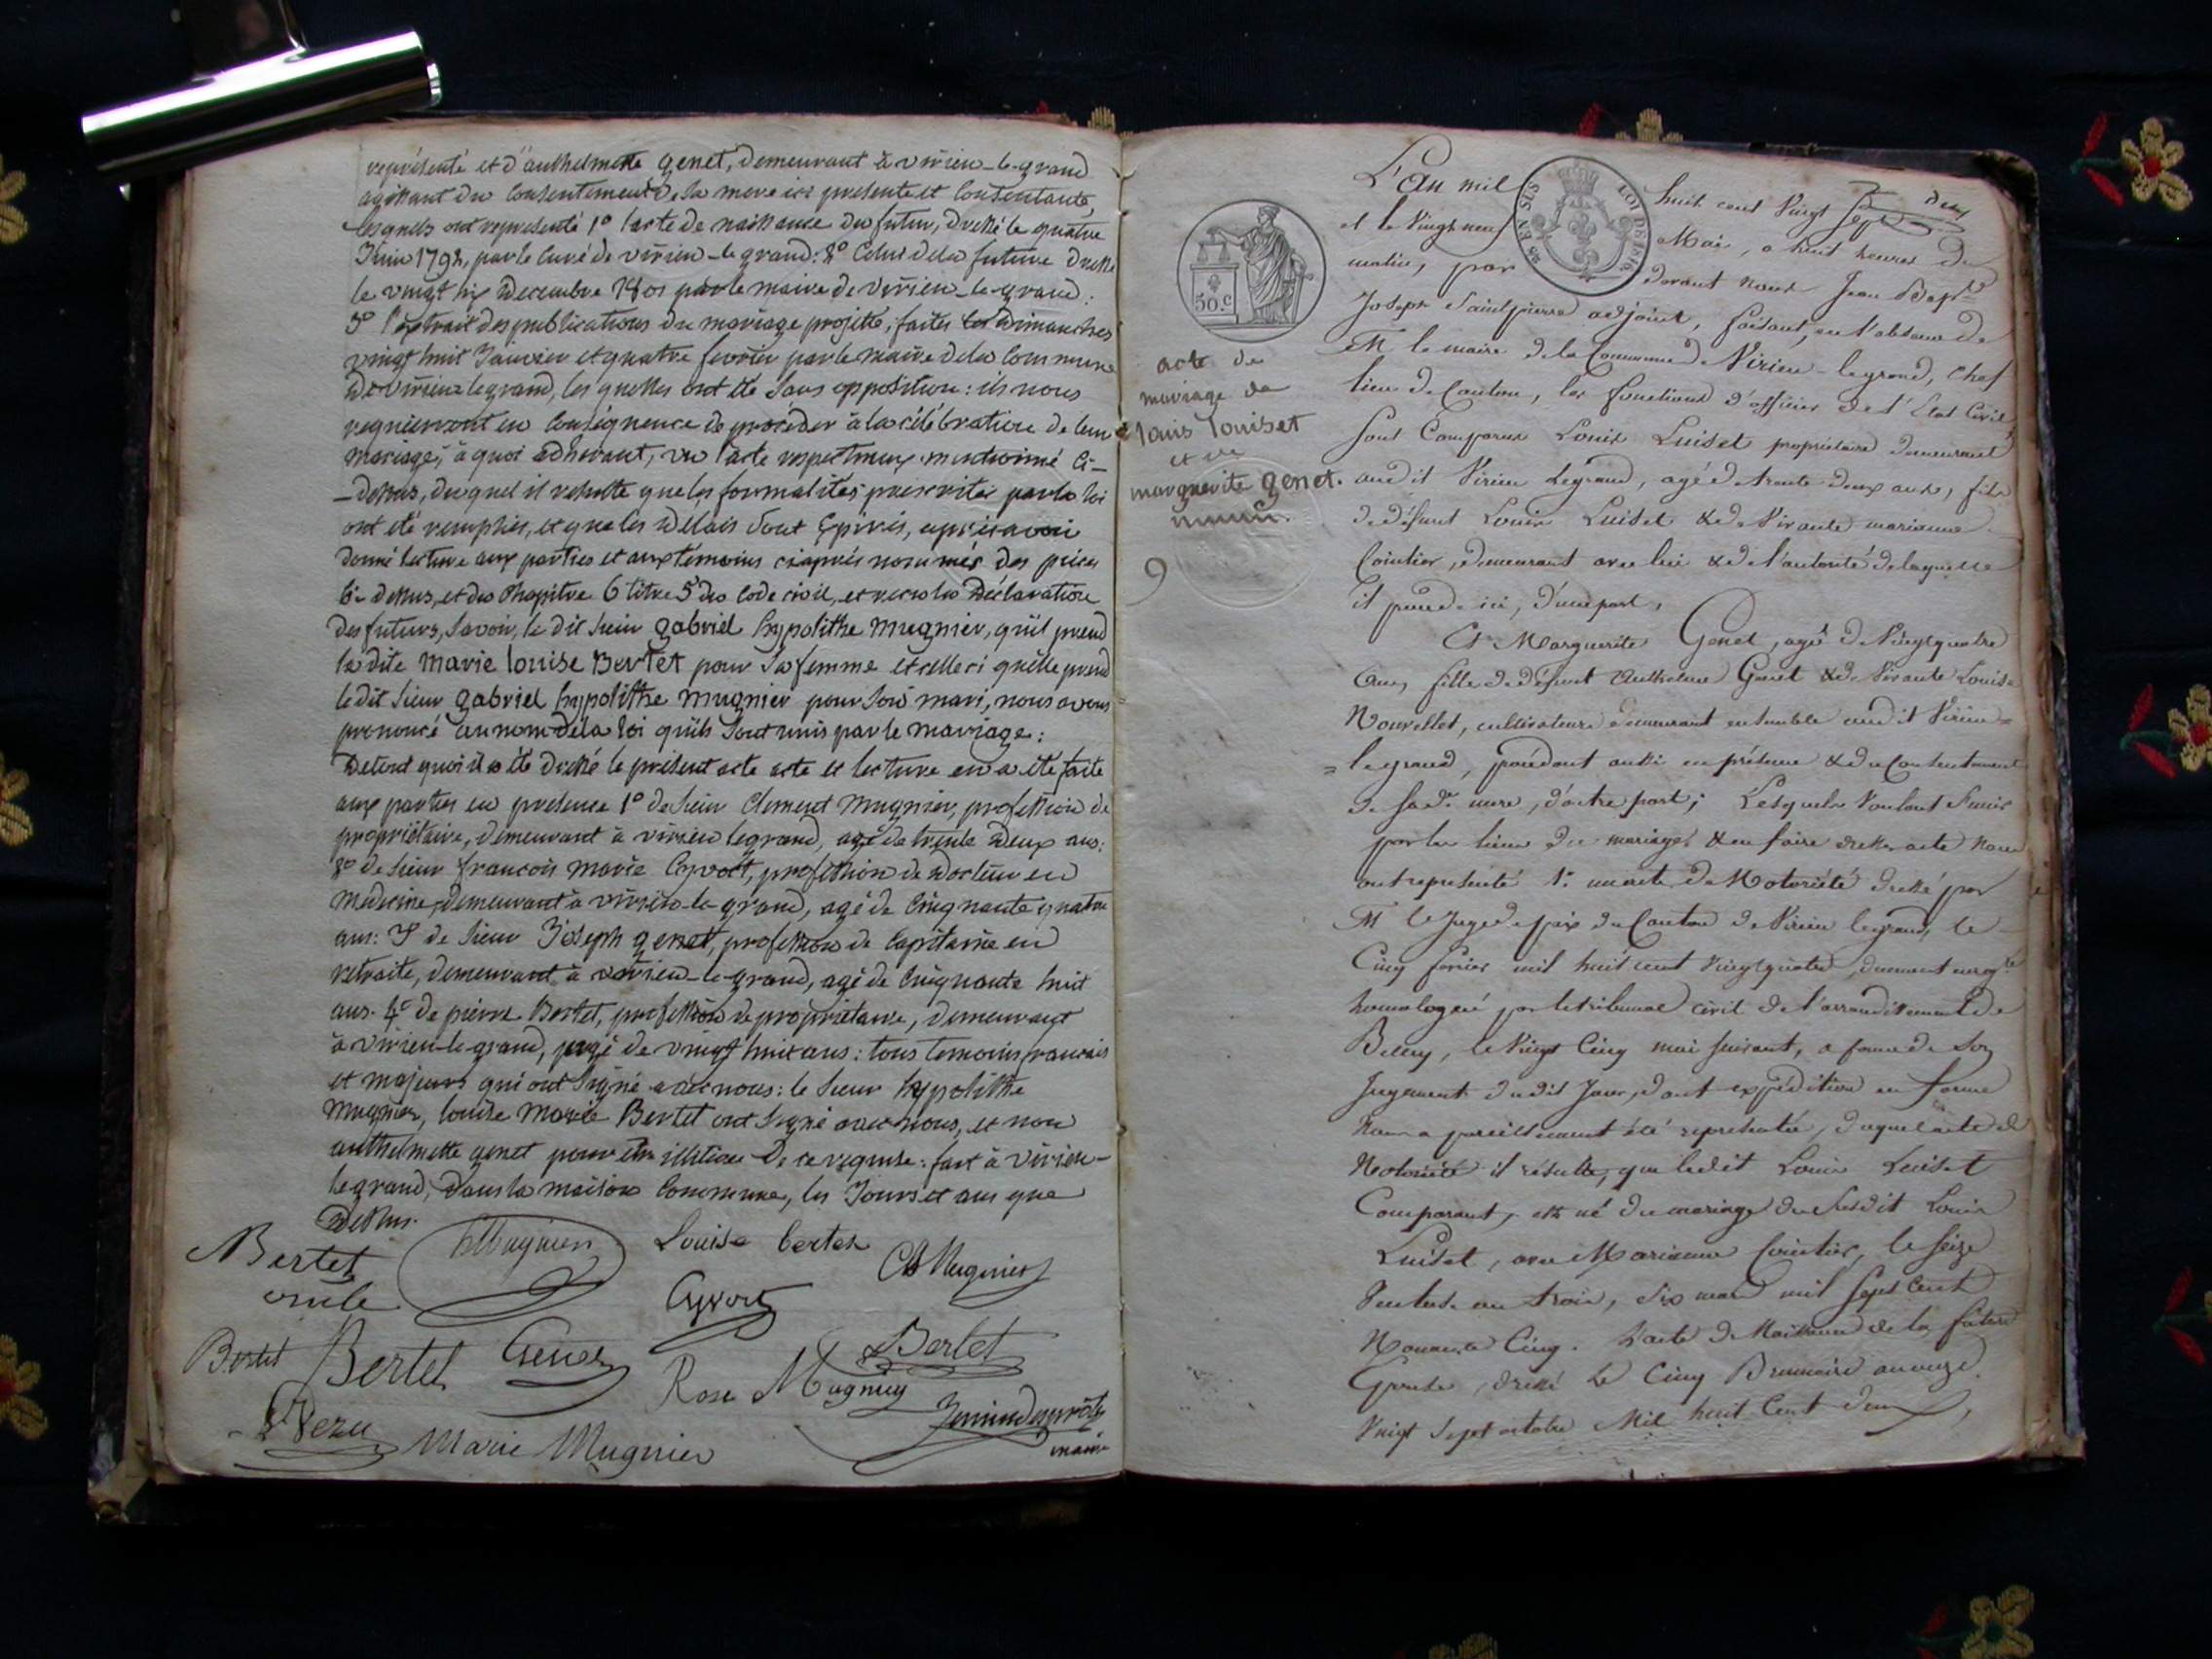 représenté et d'anthelmette genet, demeurant à virieu-le-grand
agissant du consentement de sa mere ici presente et consentante,
lesquels ont representé 1° l'acte de naissance du futur, dressé le quatre
Juin 1792, par le curé de virieu-le-grand: 2° Celui de la future dressé
le vingt six decembre 1801 par le maire de virieu-le-grand:
3° l'extrait des publications du mariage projetté, faites les dimanches
vingt huit Janvier et quatre fevrier par le maire de la commune
de virieu le grand, les quelles ont été sans opposition: ils nous
requierreront en conséquence de procéder à la célébration de leur
mariage, à quoi adherant, vu l'acte respectueux mentionné ci-
-dessus, duquel il resulte que les formalites prescrites par la loi
ont été remplies, et que les delais sont expirés, après avoir
donné lecture aux parties et aux témoins ciaprès nommés des pièces
ci-dessus, et du chapitre 6 titre 5 du code civil, et reçu la déclaration
des futurs, savoir, le dit sieur gabriel hypolithe mugnier, qu'il prend
la dite marie louise Bertet pour sa femme et celle ci qu'elle prend
le dit sieur gabriel hypolithe mugnier pour son mari, nous avons
prononcé au nom de la loi qu'ils sont unis par le mariage:
De tout quoi il a été dressé le présent acte acte et lecture en a été faite
aux parties en presence 1° de sieur Clement mugnier, profession de
propriétaire, demeurant à virieu legrand, agé de trente deux ans:
2° de sieur francois marie Cyvoct, profession de docteur en
medecine, demeurant à virieu-le-grand, agé de cinquante quatre
ans: 3° de sieur Joseph genet, profession de capitaine en
retraite, demeurant à virieu-le-grand, agé de cinquante huit
ans. 4° de pierre Bertet, profession de propriétaire, demeurant
à virieu-le-grand, agé de vingt huit ans: tous temoins francais
et majeurs qui ont signé avec nous: le sieur hypolithe
mugnier, louise marie Bertet ont signé avec nous, et non
anthelmette genet pour être illiterée de ce requise: fait à virieu-
legrand, dans la maison commune, les Jours et ans que
dessus.
Bertet
hMugnier
Louise bertet
Mugnier
oncle
Cyvoct
Bertet
Bertet
Genet
Rose Mugnier
Bertet
Marie Mugnier
maire
50.c
EN SUS
LOI DE 1816
acte de
mariage de
louis louiset
et de
marguerite genet.
9
L'an mil huit cent vingt Sept
et le vingt neuf Mai, a huit heures du
matin, par devant nous Jean Bapte
Joseph Saintpierre adjoint, faisant, en l'absence de
M le maire de la Commune de Virieu-legrand, chef
lieu de Canton, les fonctions d'officier de l'Etat Civil,
Sont Comparus Louis Luiset propriétaire demeurant
audit Virieu Legrand, agé de trente deux ans, fils
de défunt Louis Luiset & de vivante marianne
Cointier, demeurant avec lui & de l'autorité de laquelle
il procede ici, d'une part,
Et Marguerite Genet, agée de Vingtquatre
ans, fille de défunt Anthelme Genet & de vivante Louise
Nouvellet, cultivateurs demeurant ensemble audit Virieu=
=legrand, procédant aussi en présence & du Consentement
de sade mere, d'autre part; Lesquels voulant s'unir
par les liens du mariage & en faire dresser acte nous
ont representé 1.° un acte de Notoriété dressé par
M le Juge de paix du Canton de Virieu legrand, le
Cinq fevrier mil huit cent vingtquatre, dument enregté
homologué par le tribunal civil de l'arrondissement de
Belley, le Vingt Cinq mai suivant, a forme de son
Jugement dudit Jour, dont expédition en forme
nous a pareillement été representée, duquel acte de
Notoriété il résulte, que ledit Louis Luiset
Comparant, est né du mariage du susdit Louis
Luiset, avec Marianne Cointier, le seize
Ventose an trois, six mars mil sept cent
Nonante Cinq. L'acte de Naissance de la future
Epouse, dressé le Cinq Brumaire an onze
Vingt Sept octobre Mil huit Cent deux,